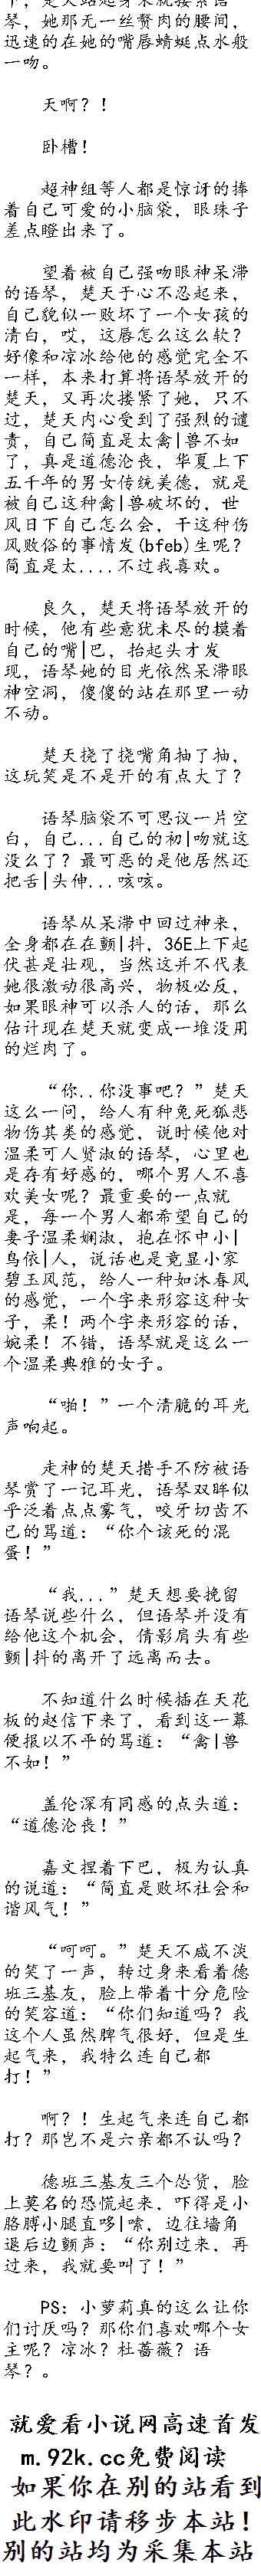 下，楚天站起身来就搂紧语
琴，她那无一丝赘肉的腰间，
迅速的在她的嘴唇蜻蜓点水般
一吻。
天啊？！
卧槽！
超神组等人都是惊讶的捧
着自己可爱的小脑袋，眼珠子
差点瞪出来了。
望着被自己强吻眼神呆滞
的语琴，楚天于心不忍起来，
自己貌似一败坏了一个女孩的
清白，哎，这唇怎么这么软？
好像和凉冰给他的感觉完全不
一样，本来打算将语琴放开的
楚天，又再次搂紧了她，只不
过，楚天内心受到了强烈的谴
责，自己简直是太禽|兽不如
了，真是道德沦丧，华夏上下
五千年的男女传统美德，就是
被自己这种禽|兽破坏的，世
风日下自己怎么会，干这种伤
风败俗的事情发(bfeb)生呢？
简直是太....不过我喜欢。
良久，楚天将语琴放开的
时候，他有些意犹未尽的摸着
自己的嘴|巴，抬起头才发
现，语琴她的目光依然呆滞眼
神空洞，傻傻的站在那里一动
不动。
楚天挠了挠嘴角抽了抽，
这玩笑是不是开的有点大了？
语琴脑袋不可思议一片空
白，自己...自己的初|吻就这
没么了？最可恶的是他居然还
把舌|头伸...咳咳。
语琴从呆滞中回过神来，
全身都在在颤|抖，36E上下起
伏甚是壮观，当然这并不代表
她很激动很高兴，物极必反，
如果眼神可以杀人的话，那么
估计现在楚天就变成一堆没用
的烂肉了。
“你..你没事吧？”楚天
这么一问，给人有种兔死狐悲
物伤其类的感觉，说时候他对
温柔可人贤淑的语琴，心里也
是存有好感的，哪个男人不喜
欢美女呢？最重要的一点就
是，每一个男人都希望自己的
妻子温柔娴淑，抱在怀中小|
鸟依|人，说话也是竟显小家
碧玉风范，给人一种如沐春风
的感觉，一个字来形容这种女
子，柔！两个字来形容的话，
婉柔！不错，语琴就是这么一
个温柔典雅的女子。
“啪！”一个清脆的耳光
声响起。
走神的楚天措手不防被语
琴赏了一记耳光，语琴双眸似
乎泛着点点雾气，咬牙切齿不
已的骂道：“你个该死的混
蛋！”
“我...”楚天想要挽留
语琴说些什么，但语琴并没有
给他这个机会，倩影肩头有些
颤|抖的离开了远离而去。
不知道什么时候插在天花
板的赵信下来了，看到这一幕
便报以不平的骂道：“禽|兽
不如！”
盖伦深有同感的点头道：
“道德沦丧！”
嘉文捏着下巴，极为认真
的说道：“简直是败坏社会和
谐风气！”
“呵呵。”楚天不咸不淡
的笑了一声，转过身来看着德
班三基友，脸上带着十分危险
的笑容道：“你们知道吗？我
这个人虽然脾气很好，但是生
起气来，我特么连自己都
打！”
啊？！生起气来连自己都
打？那岂不是六亲都不认吗？
德班三基友三个怂货，脸
上莫名的恐慌起来，吓得是小
胳膊小腿直哆|嗦，边往墙角
退后边颤声：“你别过来，再
过来，我就要叫了！”
PS：小萝莉真的这么让你
们讨厌吗？那你们喜欢哪个女
主呢？凉冰？杜蔷薇？语
琴？。
就爱看小说网高速首发
m.92k.cc免费阅读
如果你在别的站看到
此水印请移步本站！
别的站均为采集本站